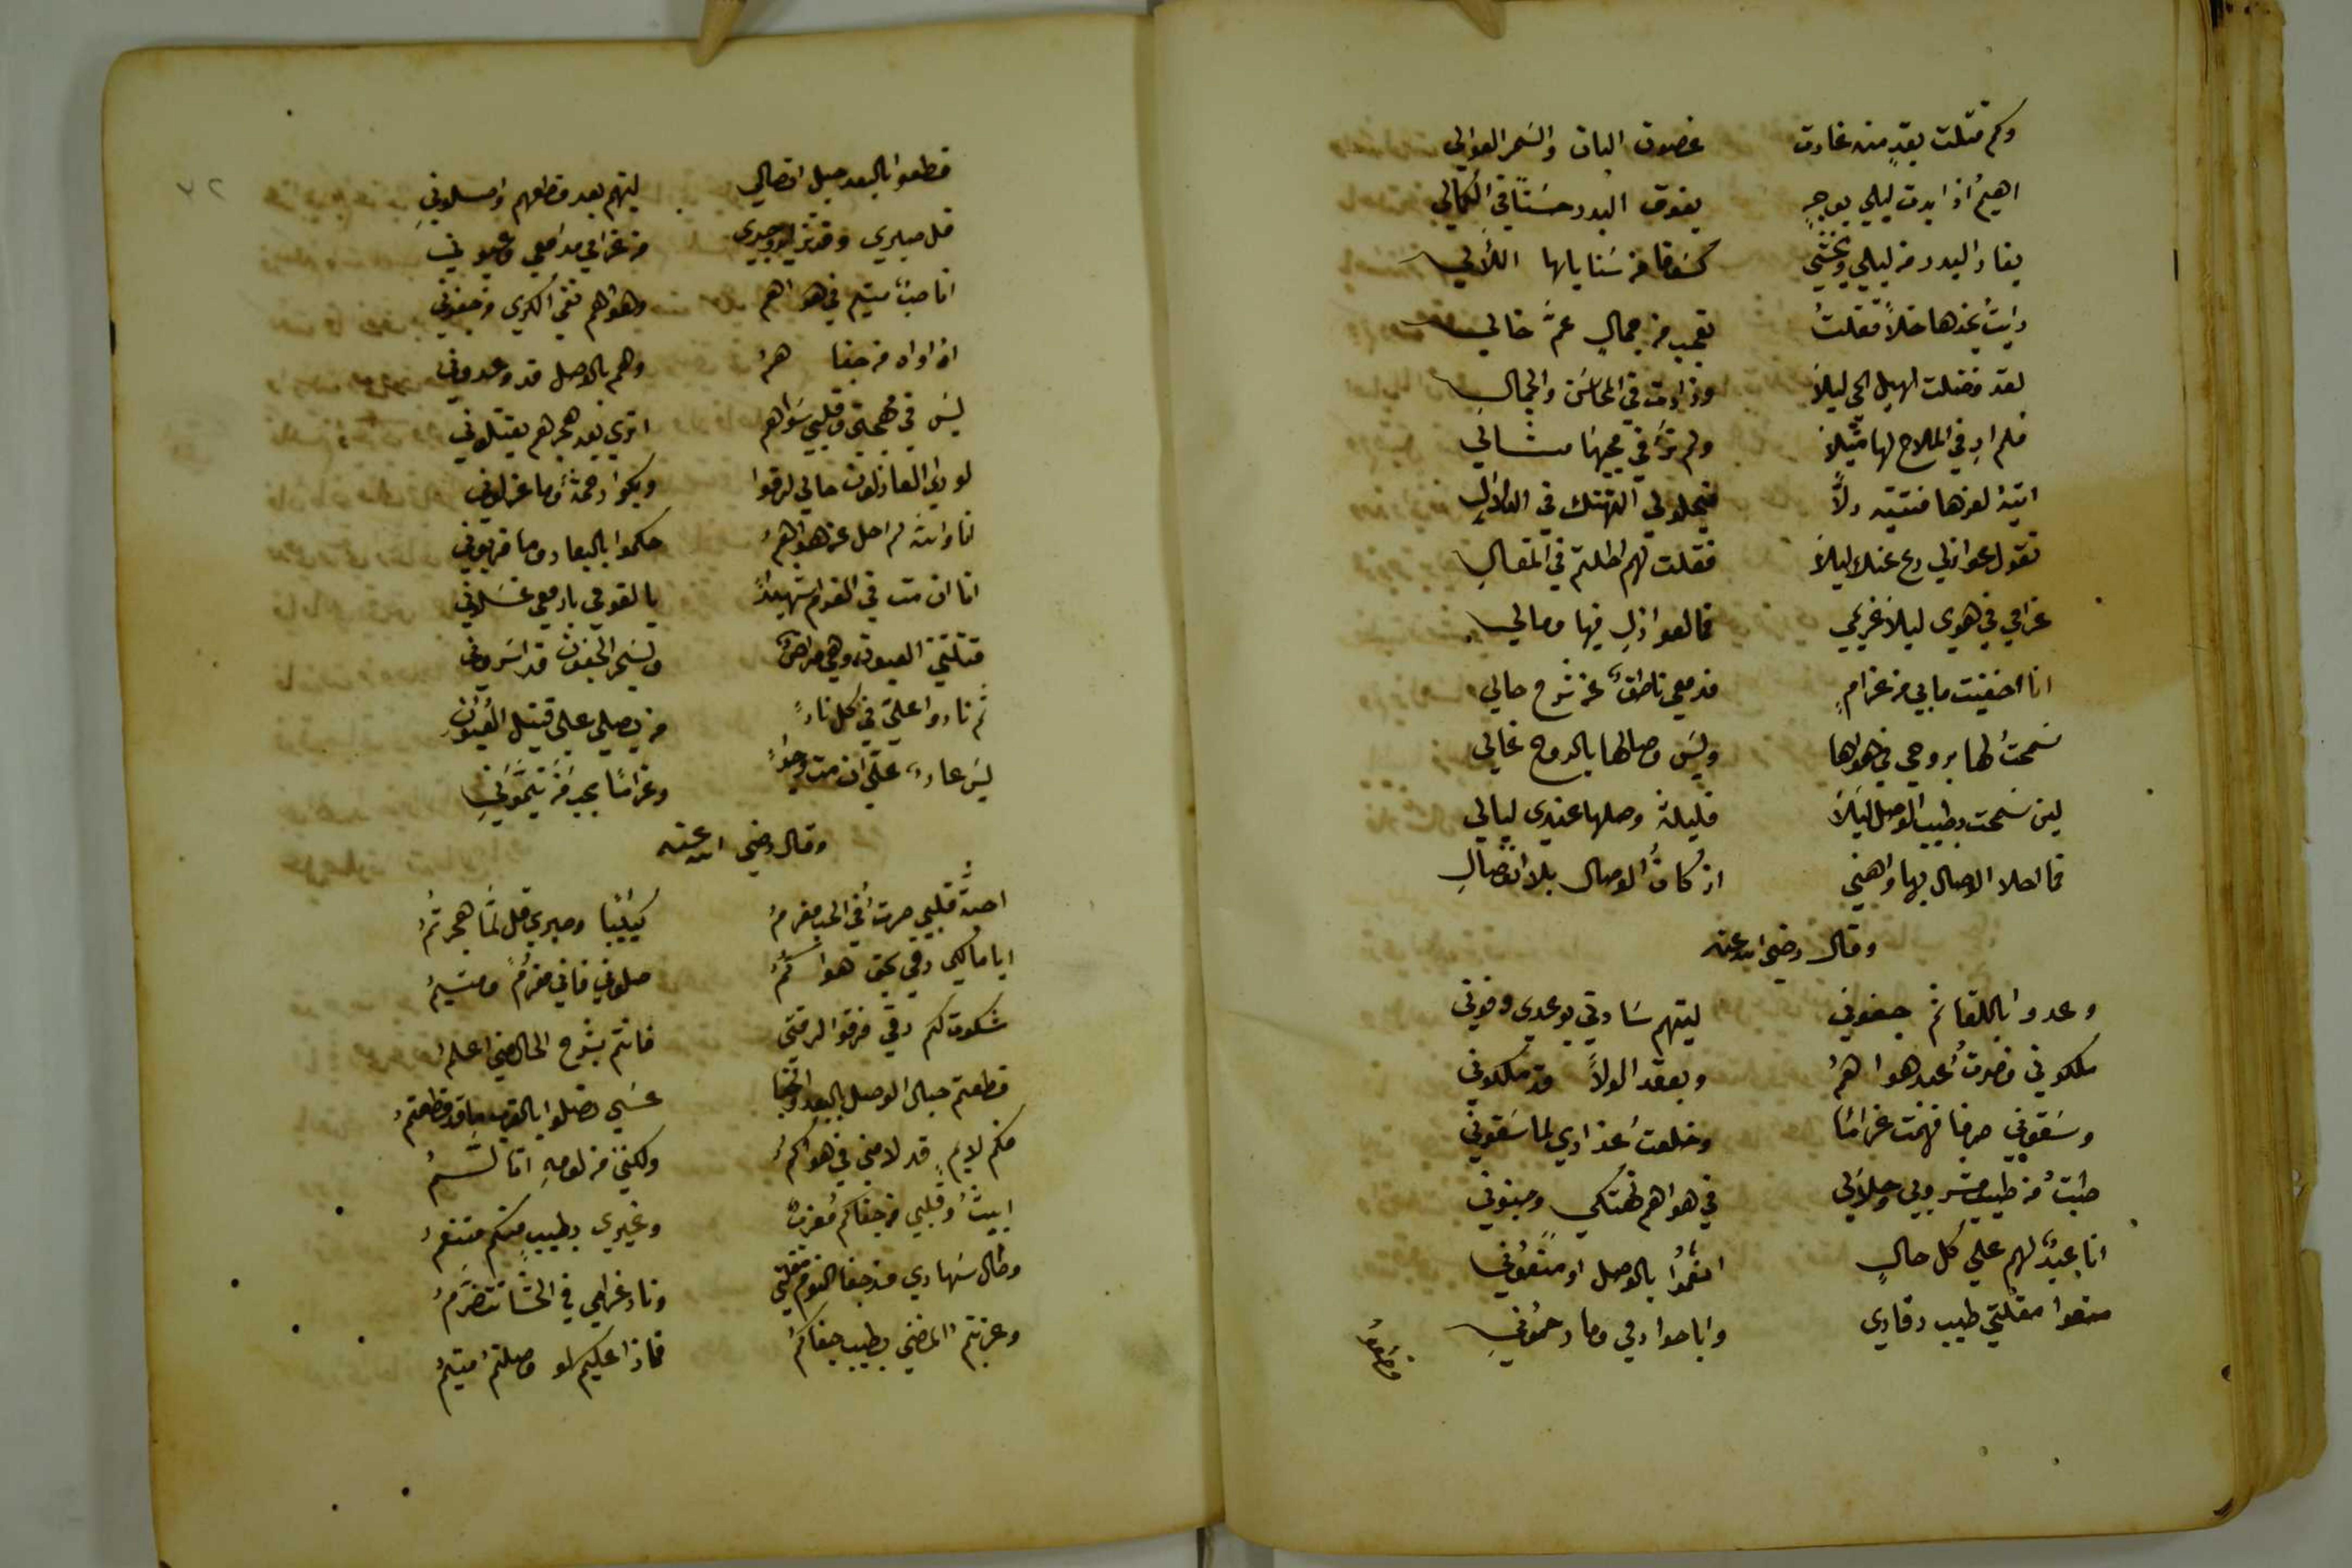 وكم قتلت بقدٍ منه غارت غصون البان والسمر العوالي
اهيمُ اذا بدت ليلي بوجهٍ يفوق البدر حسنًا في الكمالي
يغار البدر من ليلي ويختشي كسوفا من سنا ياها اللألي
رايتُ بخدها خالاً فقلتُ تعجب من جمالٍ عمّ خالي
لقد فضلت لهيل الحي ليلاَ وزادت في المحاسن والجمالِ
فلم ار في الملاح لها مثيلاً ولم تر في محبتها مثالي
اتيهُ لعزها فتتيه دلاًّ فيحلو لي التهتك في الدلالِ
تقول عواذلي دع عنك ليلاَ فقلت لهم اطلتم في المقالِ
غرامي في هوي ليلا غريمي فما لعواذلٍ فيها ومالي
انا اخفيت ما بي من غرامٍ فدمعي ناطقٌ عن شرح حالي
سمحتُ لها بروحي في هواها وليس وصالها بالروح غالي
لين سمحت بطيب الوصل ليلاَ فليلة وصلها عندي ليالي
فما احلا الوصال بها واهني اذ كان الوصال بلا انفصالِ
وقال رضي الله عنه
وعدوا باللقا ثم جفوني ليتهم سادتي بوعدي وفوني
ملكوني فصرتُ عبد هواهمُ وبعقد الولاَ قد ملكوني
وسقوني صرفا فهمت غرامًا وخلعت عذاري لما سقوني
طبتُ من طيب مشروبي وحلالي في هواهم تهتكي وجنوني
انا عبدٌ لهم علي كل حالٍ انعموا بالوصل او منعوني
منعوا مقلتي طيب رقادي واباحوا دمي وما رحموني
قطعوا
قطعوا بالبعد حبل اتصالي ليتهم بعد قطعهم واصلوني
قل صبري وقد تزايد وجدي من غرامي مدامعي وعيوني
انا صبٌّ متيم في هواهم وهواهم نفي الكري من جفوني
اه اواه من جفا همُ وهم بالوصل قد وعدوني
ليس في مهجتي وقلبي سواهم اتري بعد هجرهم يقتلوني
لو راي العاذلون حالي لرقوا وبكوا رحمةً وما عزلوني
انا والله لم احل عن هواهمُ حكموا بالبعاد وما قربوني
انا ان مت في الغرام شهيداً يا لقومي بادمعي غسلوني
قتلتني العيون وهي مراضٌ وبسحر الجفون قد اسروني
ثم نادوا علي في كل نادٍ من يصلي علي قتيل العيونِ
ليس عارٌ علي ان مت وجداً وغرامًا بحب من تيموني
وقال رضي الله عنه
احبة قلبي صرت في الحب مغرمُ كئيبا وصبري قل لمّا هجرتمُ
ايا مالكي رقي بحق هواكمُ صلوني فاني مغرمٌ ومتيمُ
شكوت لكم رقي فرقوا لرقتي فانتم بشرح الحال مني اعلم
قطعتم حبال الوصل بالبعد والجفا عسي تصلوا بالقرب ما قد قطعتم
فكم لايمٍ قد لامني في هواكمُ ولكنني من لومهِ اتألمُ
ابيتُ وقلبي من جفاكم معزبٌ وغيري بطيبٍ منكم متنعمُ
وطال سهادي مذ جفا النوم مقلتي ونار غرامي في الحشا تتضرّمُ
وعزبتم المضني بطيب جفاكمُ فماذا عليكم لو وصلتم متيمُ